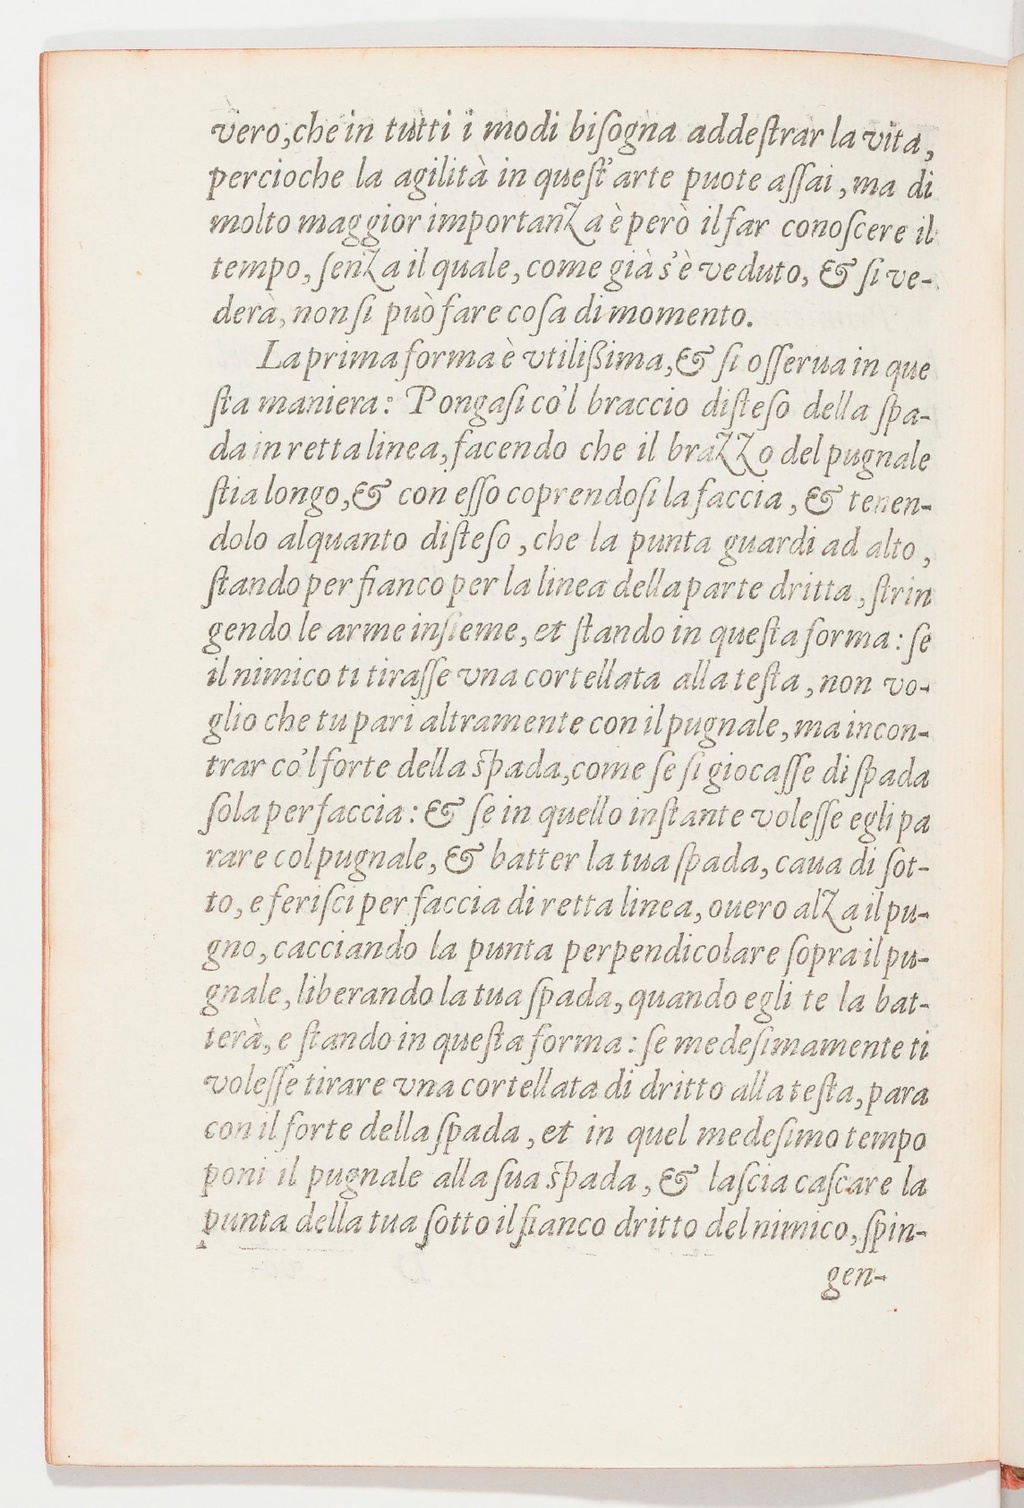 vero, che in tutti i modi biſogna addeſtrar la vita,
percioche la agilità in queſt'arte puote aſſai, ma di
molto maggior importanza è però il far conoſcere il
tempo, ſenza il quale, come già s'è veduto, & ſi ve-
derà, non ſi può fare coſa di momento.
La prima forma è vtiliſsima, & ſi oſſerua in que
ſta maniera: Pongaſi co'l braccio diſteſo della ſpa-
da in retta linea, facendo che il brazzo del pugnale
ſtia longo, & con eſſo coprendoſi la faccia, & tenen-
dolo alquanto diſteſo, che la punta guardi ad alto,
ſtando per fianco per la linea della parte dritta, ſtrin
gendo le arme inſieme, et ſtando in queſta forma: ſe
il nimico ti tiraſſe vna cortellata alla teſta, non vo-
glio che tu pari altramente con il pugnale, ma incon-
trar co'l forte della ſpada, come ſe ſi giocaſſe di ſpada
ſola per faccia: & ſe in quello inſtante voleſſe egli pa
rare col pugnale, & batter la tua ſpada, caua di ſot-
to, e feriſci per faccia di retta linea, ouero alza il pu-
gno, cacciando la punta perpendicolare ſopra il pu-
gnale, liberando la tua ſpada, quando egli te la bat-
terà, e ſtando in queſta forma: ſe medeſimamente ti
voleſſe tirare vna cortellata di dritto alla teſta, para
con il forte della ſpada, et in quel medeſimo tempo
poni il pugnale alla ſua ſpada, & laſcia caſcare la
punta della tua ſotto il fianco dritto del nimico, ſpin-
gen-